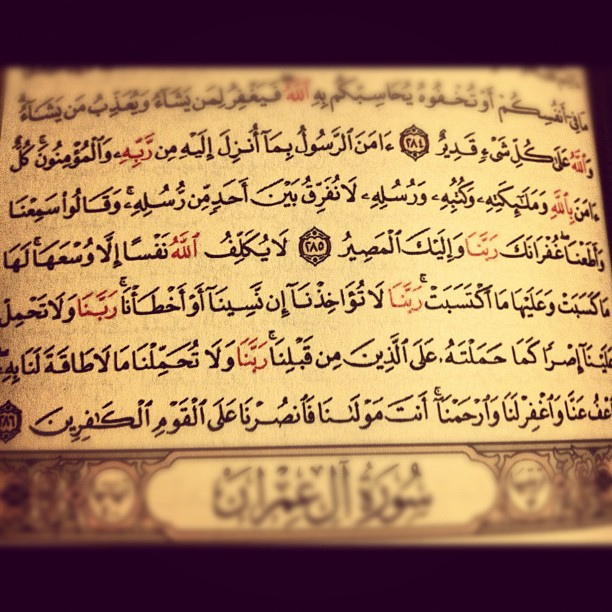 مَا فِىٓ أَنفُسِكُمْ أَوْ تُخْفُوهُ يُحَاسِبْكُم بِهِ ٱللَّهُ فَيَغْفِرُ لِمَن يَشَآءُ وَيُعَذِّبُ مَن يَشَآءُ
وَٱللَّهُ عَلَىٰ كُلِّ شَىْءٍ قَدِيرٌ ٢٨٤ ءَامَنَ ٱلرَّسُولُ بِمَآ أُنزِلَ إِلَيْهِ مِن رَّبِّهِۦ وَٱلْمُؤْمِنُونَ كُلٌّ
ءَامَنَ بِٱللَّهِ وَمَلَٰٓئِكَتِهِۦ وَكُتُبِهِۦ وَرُسُلِهِۦ لَا نُفَرِّقُ بَيْنَ أَحَدٍ مِّن رُّسُلِهِۦ وَقَالُوا۟ سَمِعْنَا
وَأَطَعْنَا غُفْرَانَكَ رَبَّنَا وَإِلَيْكَ ٱلْمَصِيرُ ٢٨٥ لَا يُكَلِّفُ ٱللَّهُ نَفْسًا إِلَّا وُسْعَهَا لَهَا
مَا كَسَبَتْ وَعَلَيْهَا مَا ٱكْتَسَبَتْ رَبَّنَا لَا تُؤَاخِذْنَآ إِن نَّسِينَآ أَوْ أَخْطَأْنَا رَبَّنَا وَلَا تَحْمِلْ
عَلَيْنَآ إِصْرًا كَمَا حَمَلْتَهُۥ عَلَى ٱلَّذِينَ مِن قَبْلِنَا رَبَّنَا وَلَا تُحَمِّلْنَا مَا لَا طَاقَةَ لَنَا بِهِۦ
وَٱعْفُ عَنَّا وَٱغْفِرْ لَنَا وَٱرْحَمْنَآ أَنتَ مَوْلَىٰنَا فَٱنصُرْنَا عَلَى ٱلْقَوْمِ ٱلْكَٰفِرِينَ ٢٨٦
سُورَةُ آلِ عِمْرَانَ